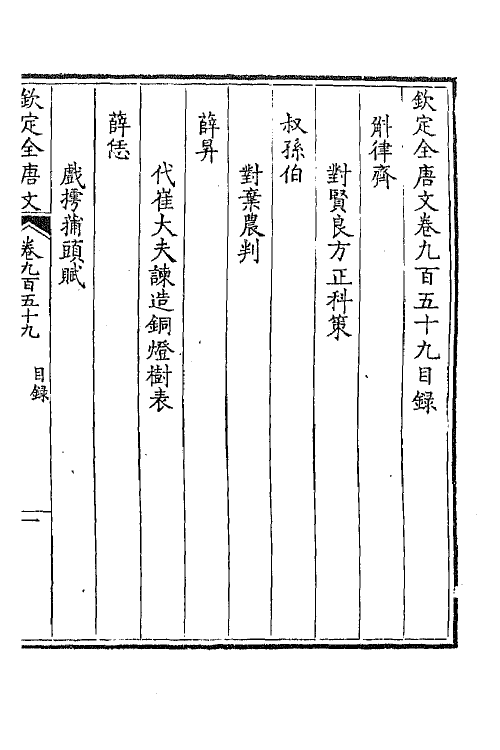 欽定全唐文卷九百五十九目録
斛律齊
對賢良方正科策
叔孫伯
對棄農判
薛昇
代崔大夫諫造銅燈樹表
薛恁
戲摴蒱頭賦
欽定全唐文
卷九百五十九
目録
一